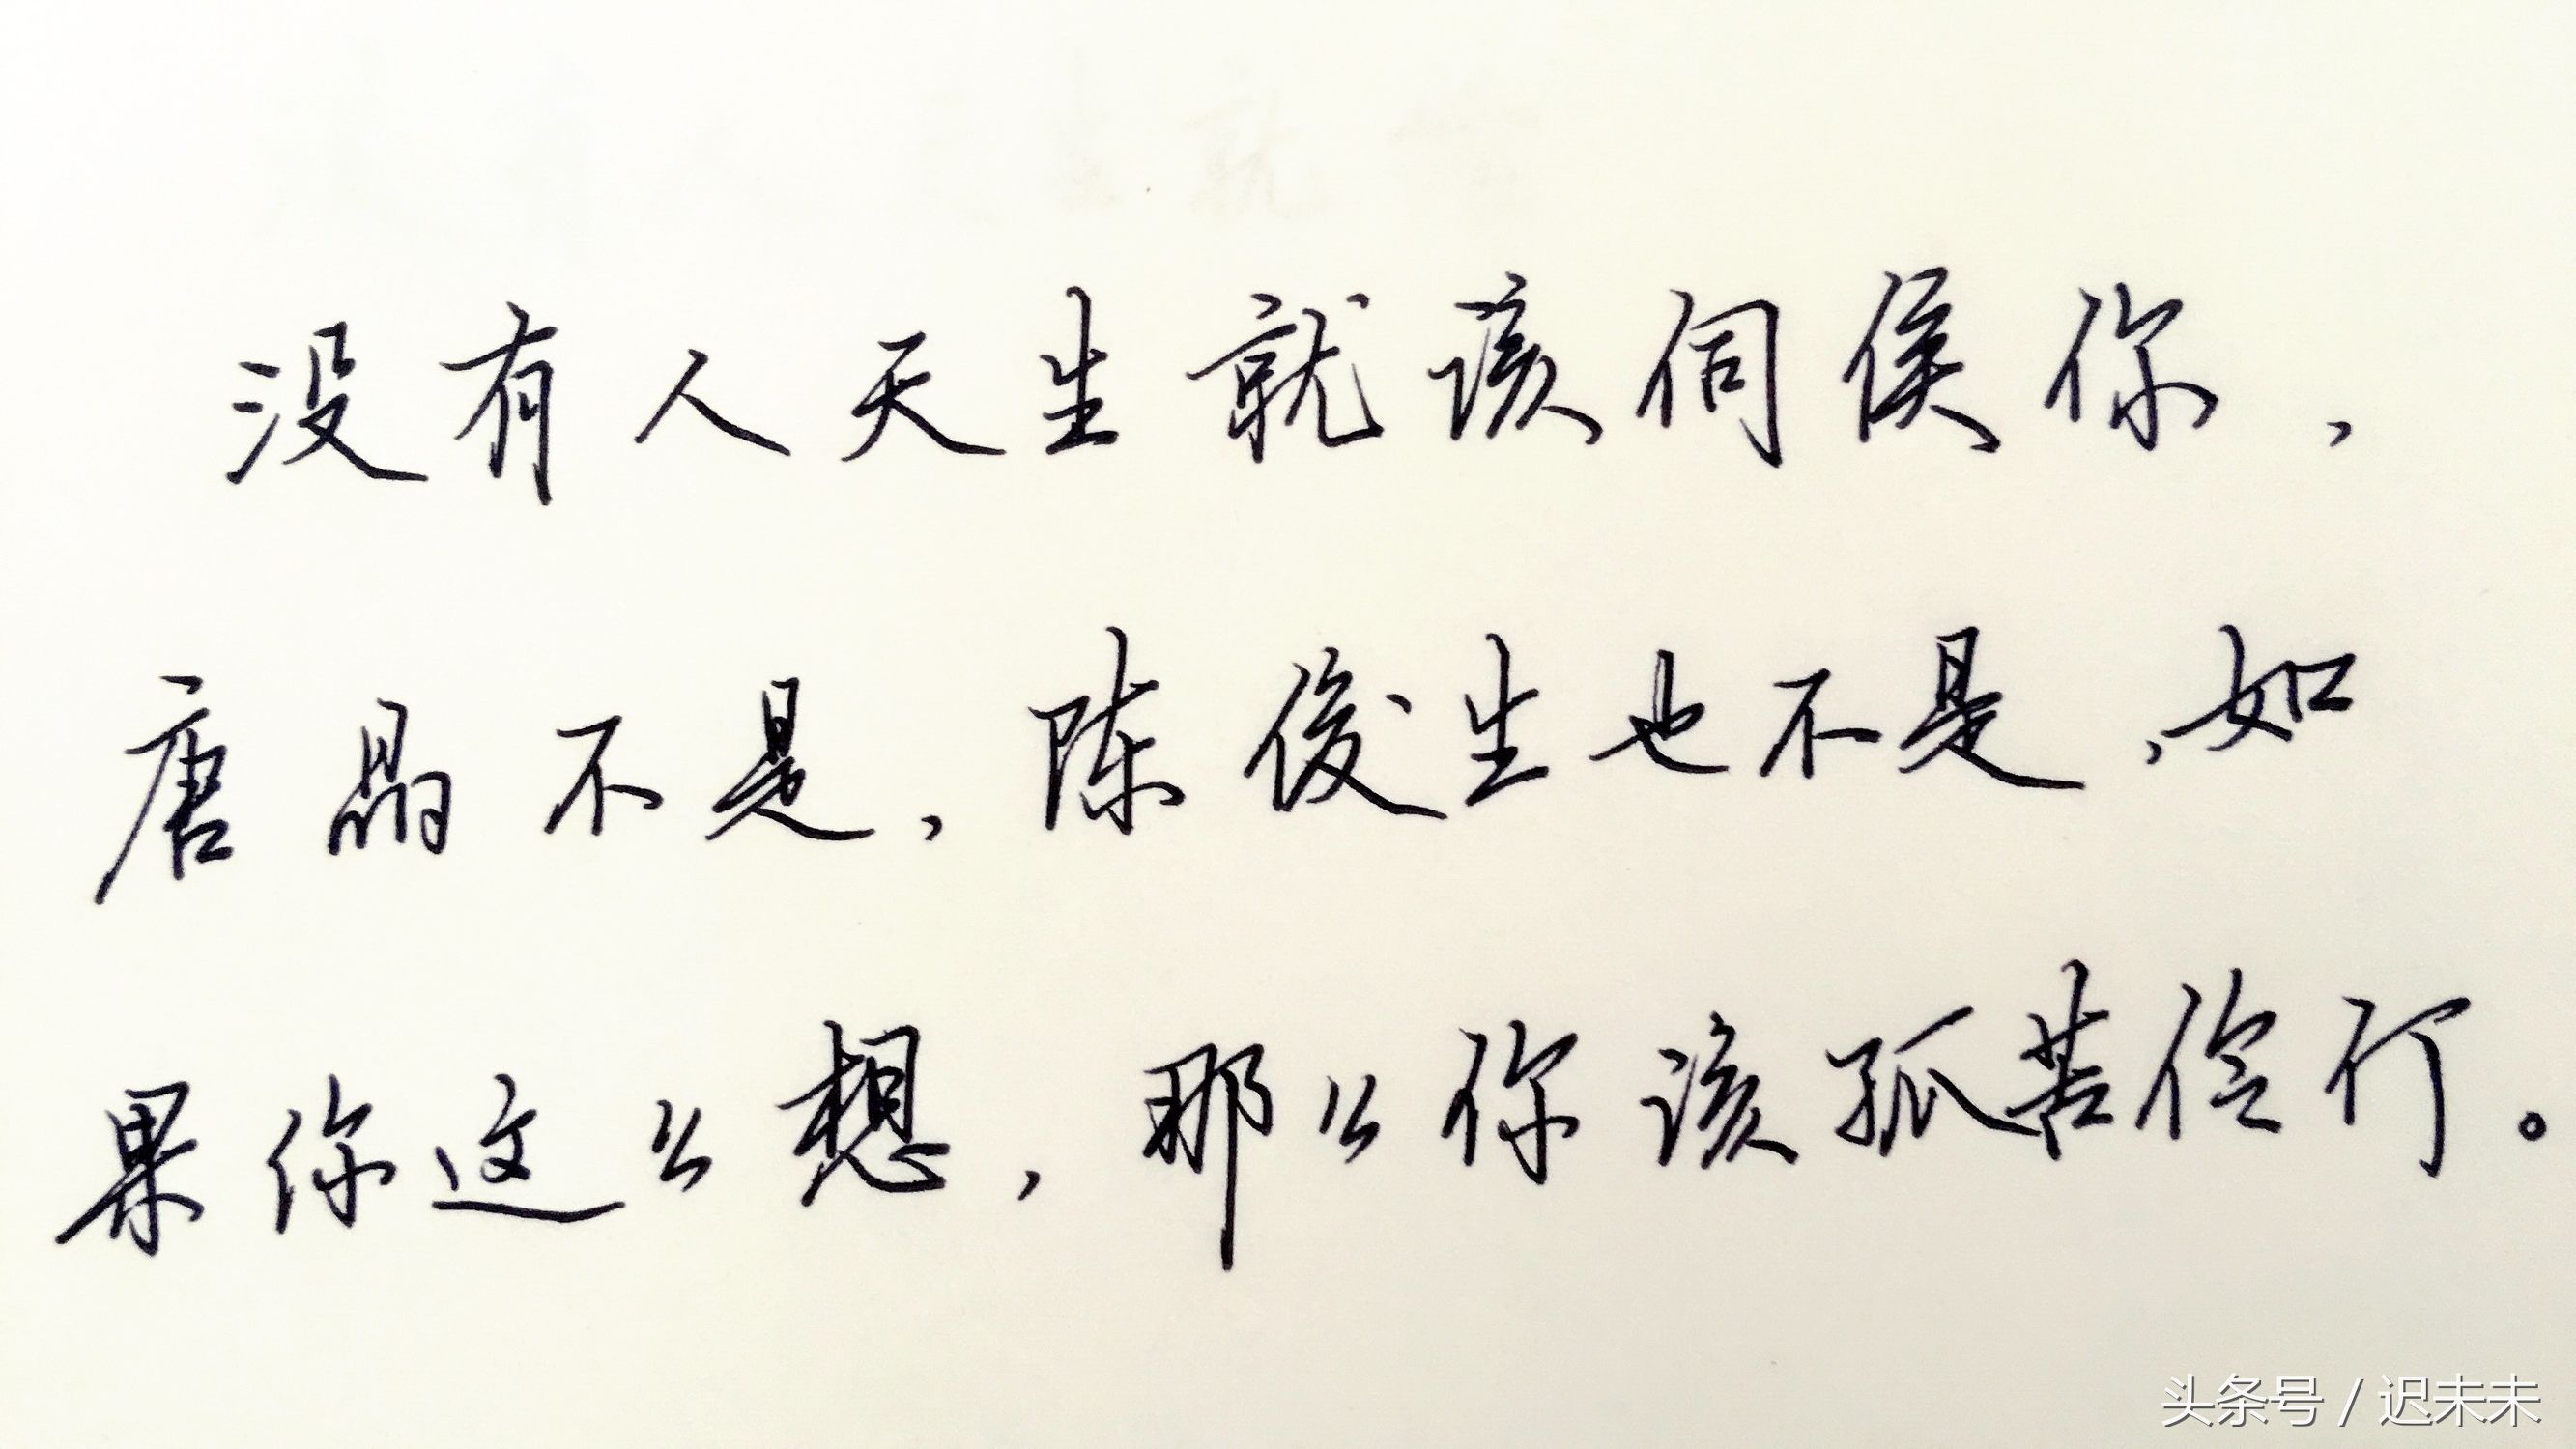 没有人天生就该伺候你，
唐晶不是，陈俊生也不是，如
果你这么想，那么你该孤苦伶仃。
头条号 / 迟未未